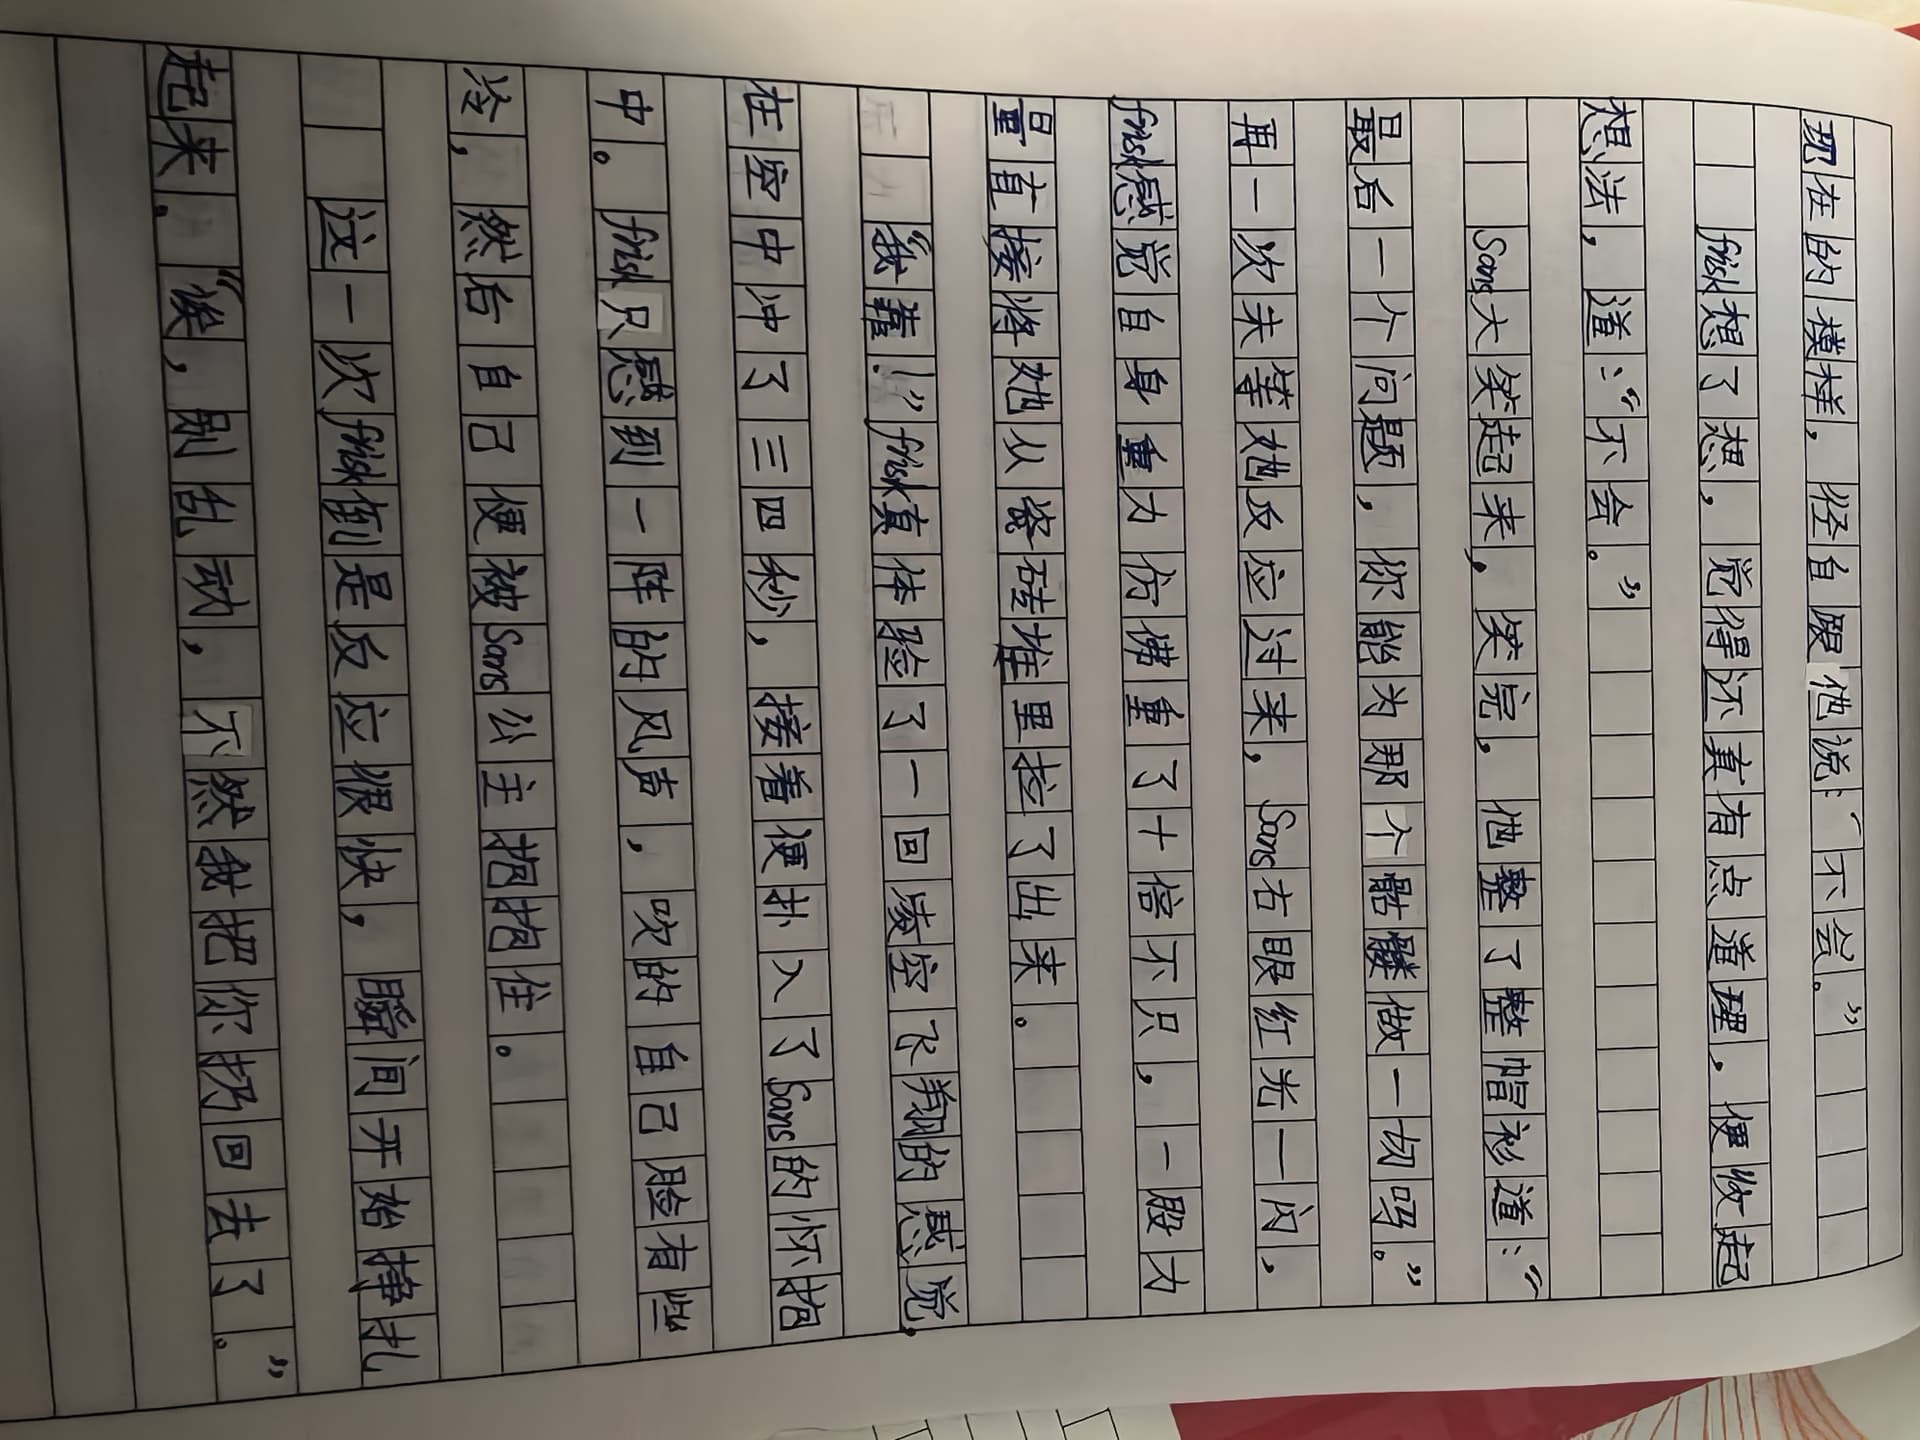 现在的模样，径自跟他说：“不会。”
frisk想了想，觉得还真有点道理，便收起
想法，道：“不会。”
Sans大笑起来，笑完，他整了整帽衫道：“
最后一个问题，你能为那个骷髅做一切吗。”
再一次未等她反应过来，Sans右眼红光一闪，
frisk感觉自身重力仿佛重了十倍不只，一股力
量直接将她从瓷砖堆里拉了出来。
“我靠！”frisk真体验了一回凌空飞翔的感觉，
在空中冲了三四秒，接着便扑入了Sans的怀抱
中。frisk只感到一阵的风声，吹的自己脸有些
冷，然后自己便被Sans公主抱抱住。
这一次frisk倒是反应很快，瞬间开始挣扎
起来。“诶，别乱动，不然我把你扔回去了。”